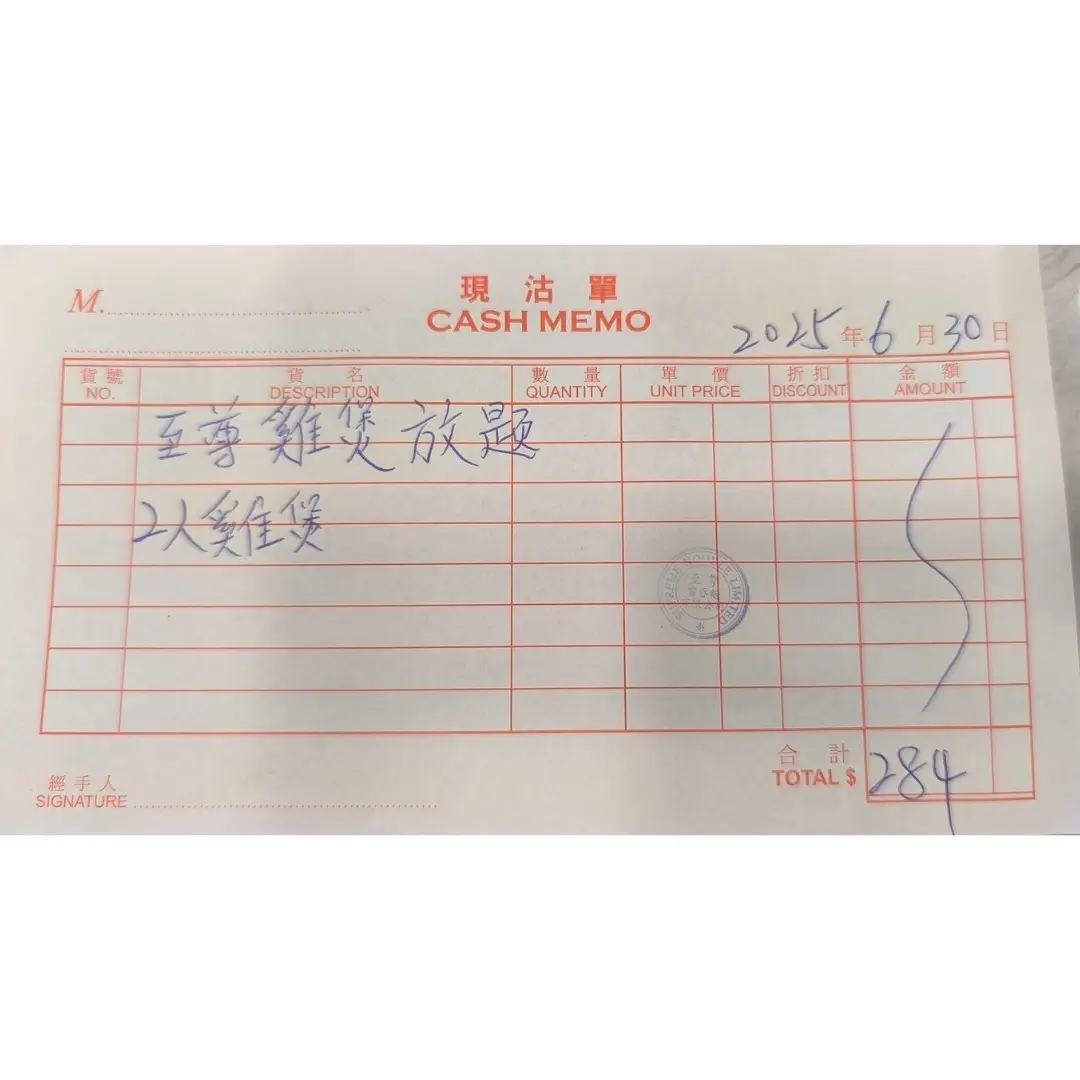 現沽單
M.
CASH MEMO
2025年6月30日
貨號 貨名 數量 單價 折扣 金額
NO. DESCRIPTION QUANTITY UNIT PRICE DISCOUNT AMOUNT
至尊雞煲放題
2人雞煲
SUPREME LIMITED
合計
TOTAL $ 284
經手人
SIGNATURE